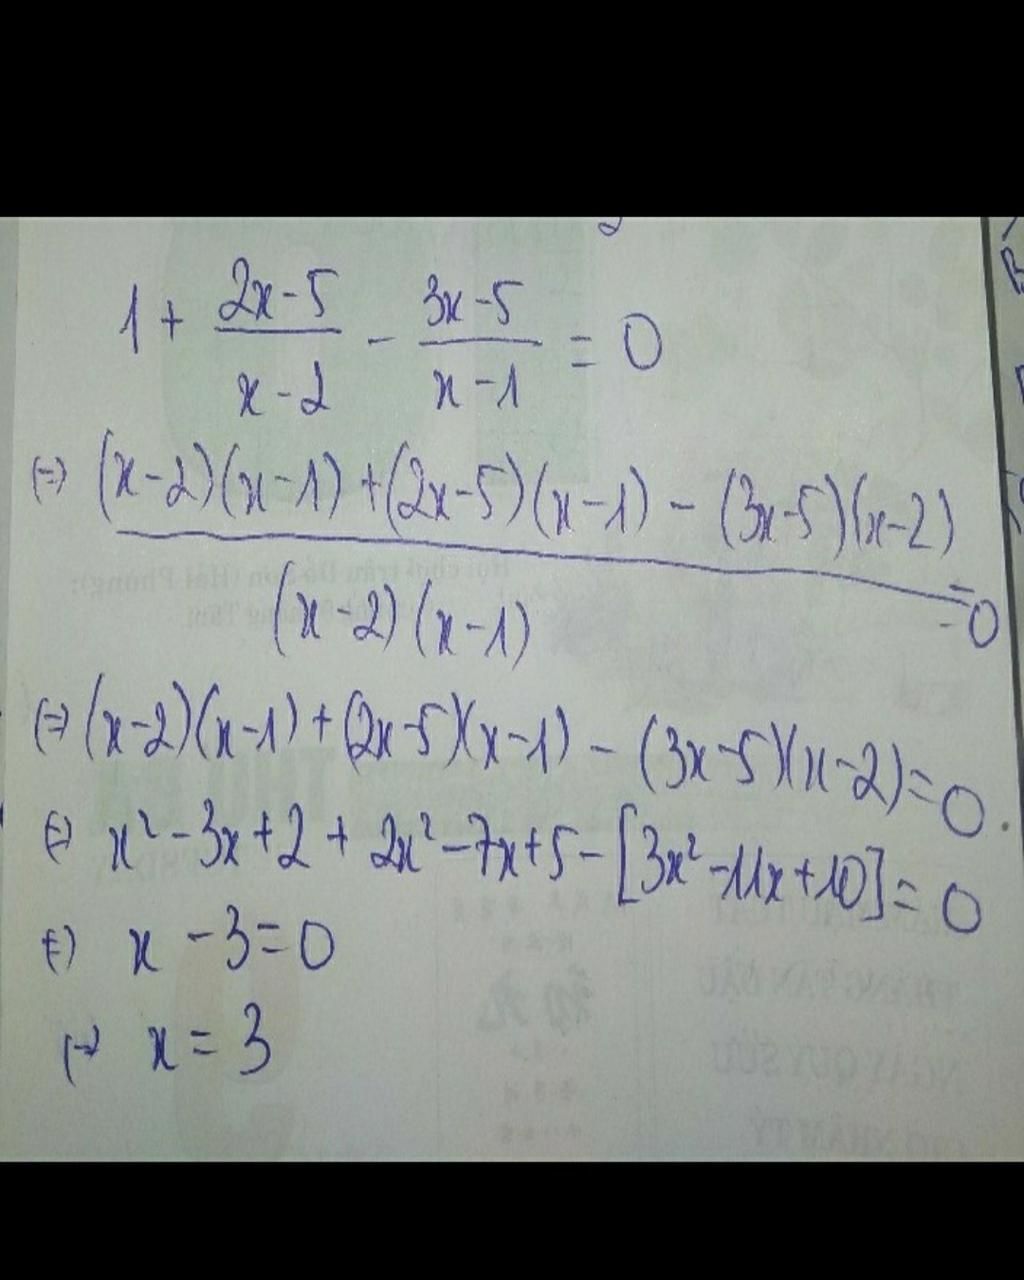 1 + (2x-5)/(x-2) - (3x-5)/(x-1) = 0
(=) ((x-2)(x-1) + (2x-5)(x-1) - (3x-5)(x-2))/((x-2)(x-1)) = 0
(=) (x-2)(x-1) + (2x-5)(x-1) - (3x-5)(x-2) = 0
(=) x² - 3x + 2 + 2x² - 7x + 5 - [3x² - 11x + 10] = 0
(=) x - 3 = 0
(=) x = 3